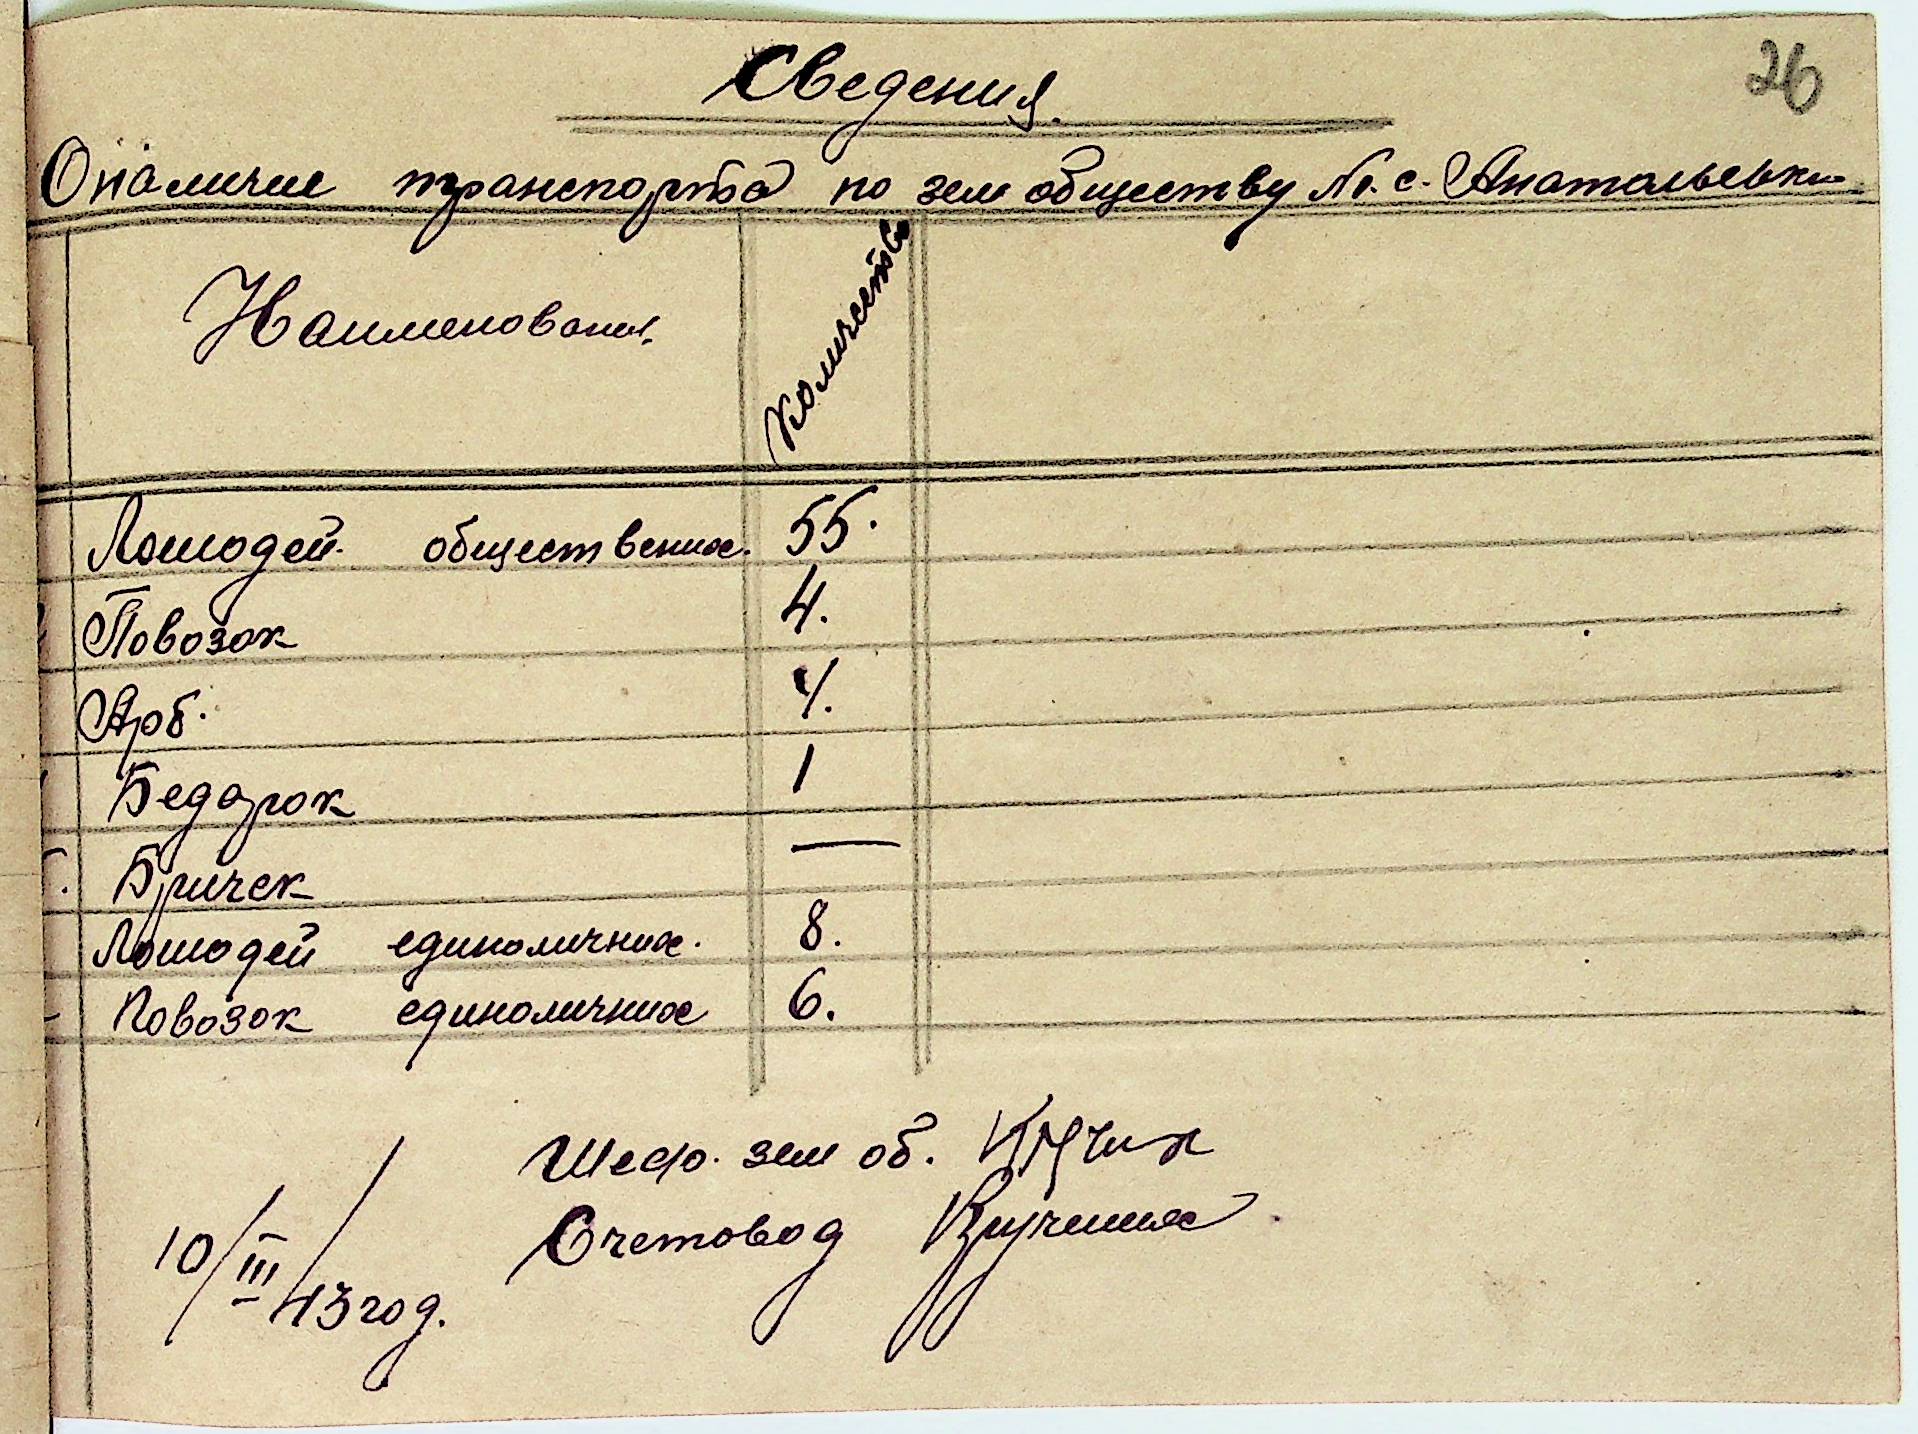 26
Сведения.
О наличие транспорта по зем обществу №. с. Анатольевки
Наименования. Количество
Лошодей обществених. 55.
Повозок 4.
Арб. 4.
Бедарок 1
Бричек —
Лошодей единоличних. 8.
Повозок единоличних 6.
Шеф. зем об.
Счетовод
10/III/43 год.